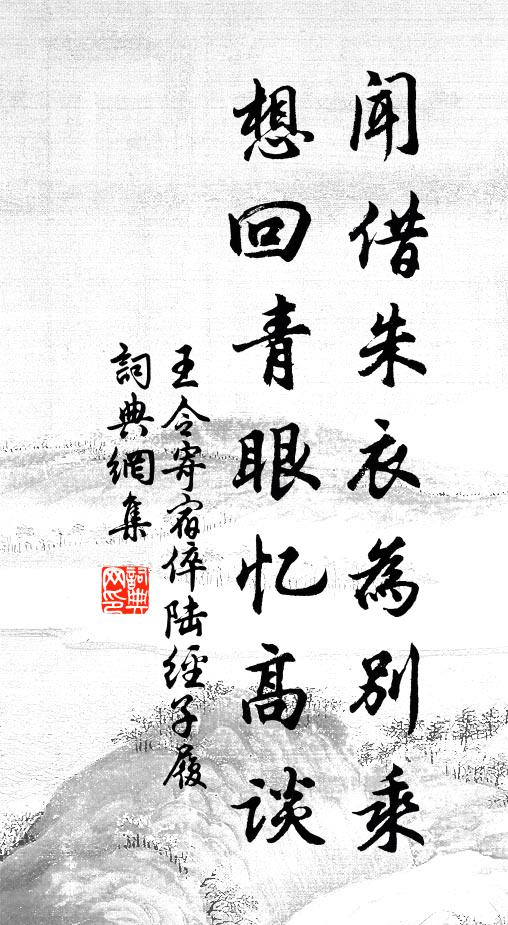 闻借朱衣為别乘
想回青眼忆高谈
王令寄宿倅陆經子履
詞典網集
詞典网印